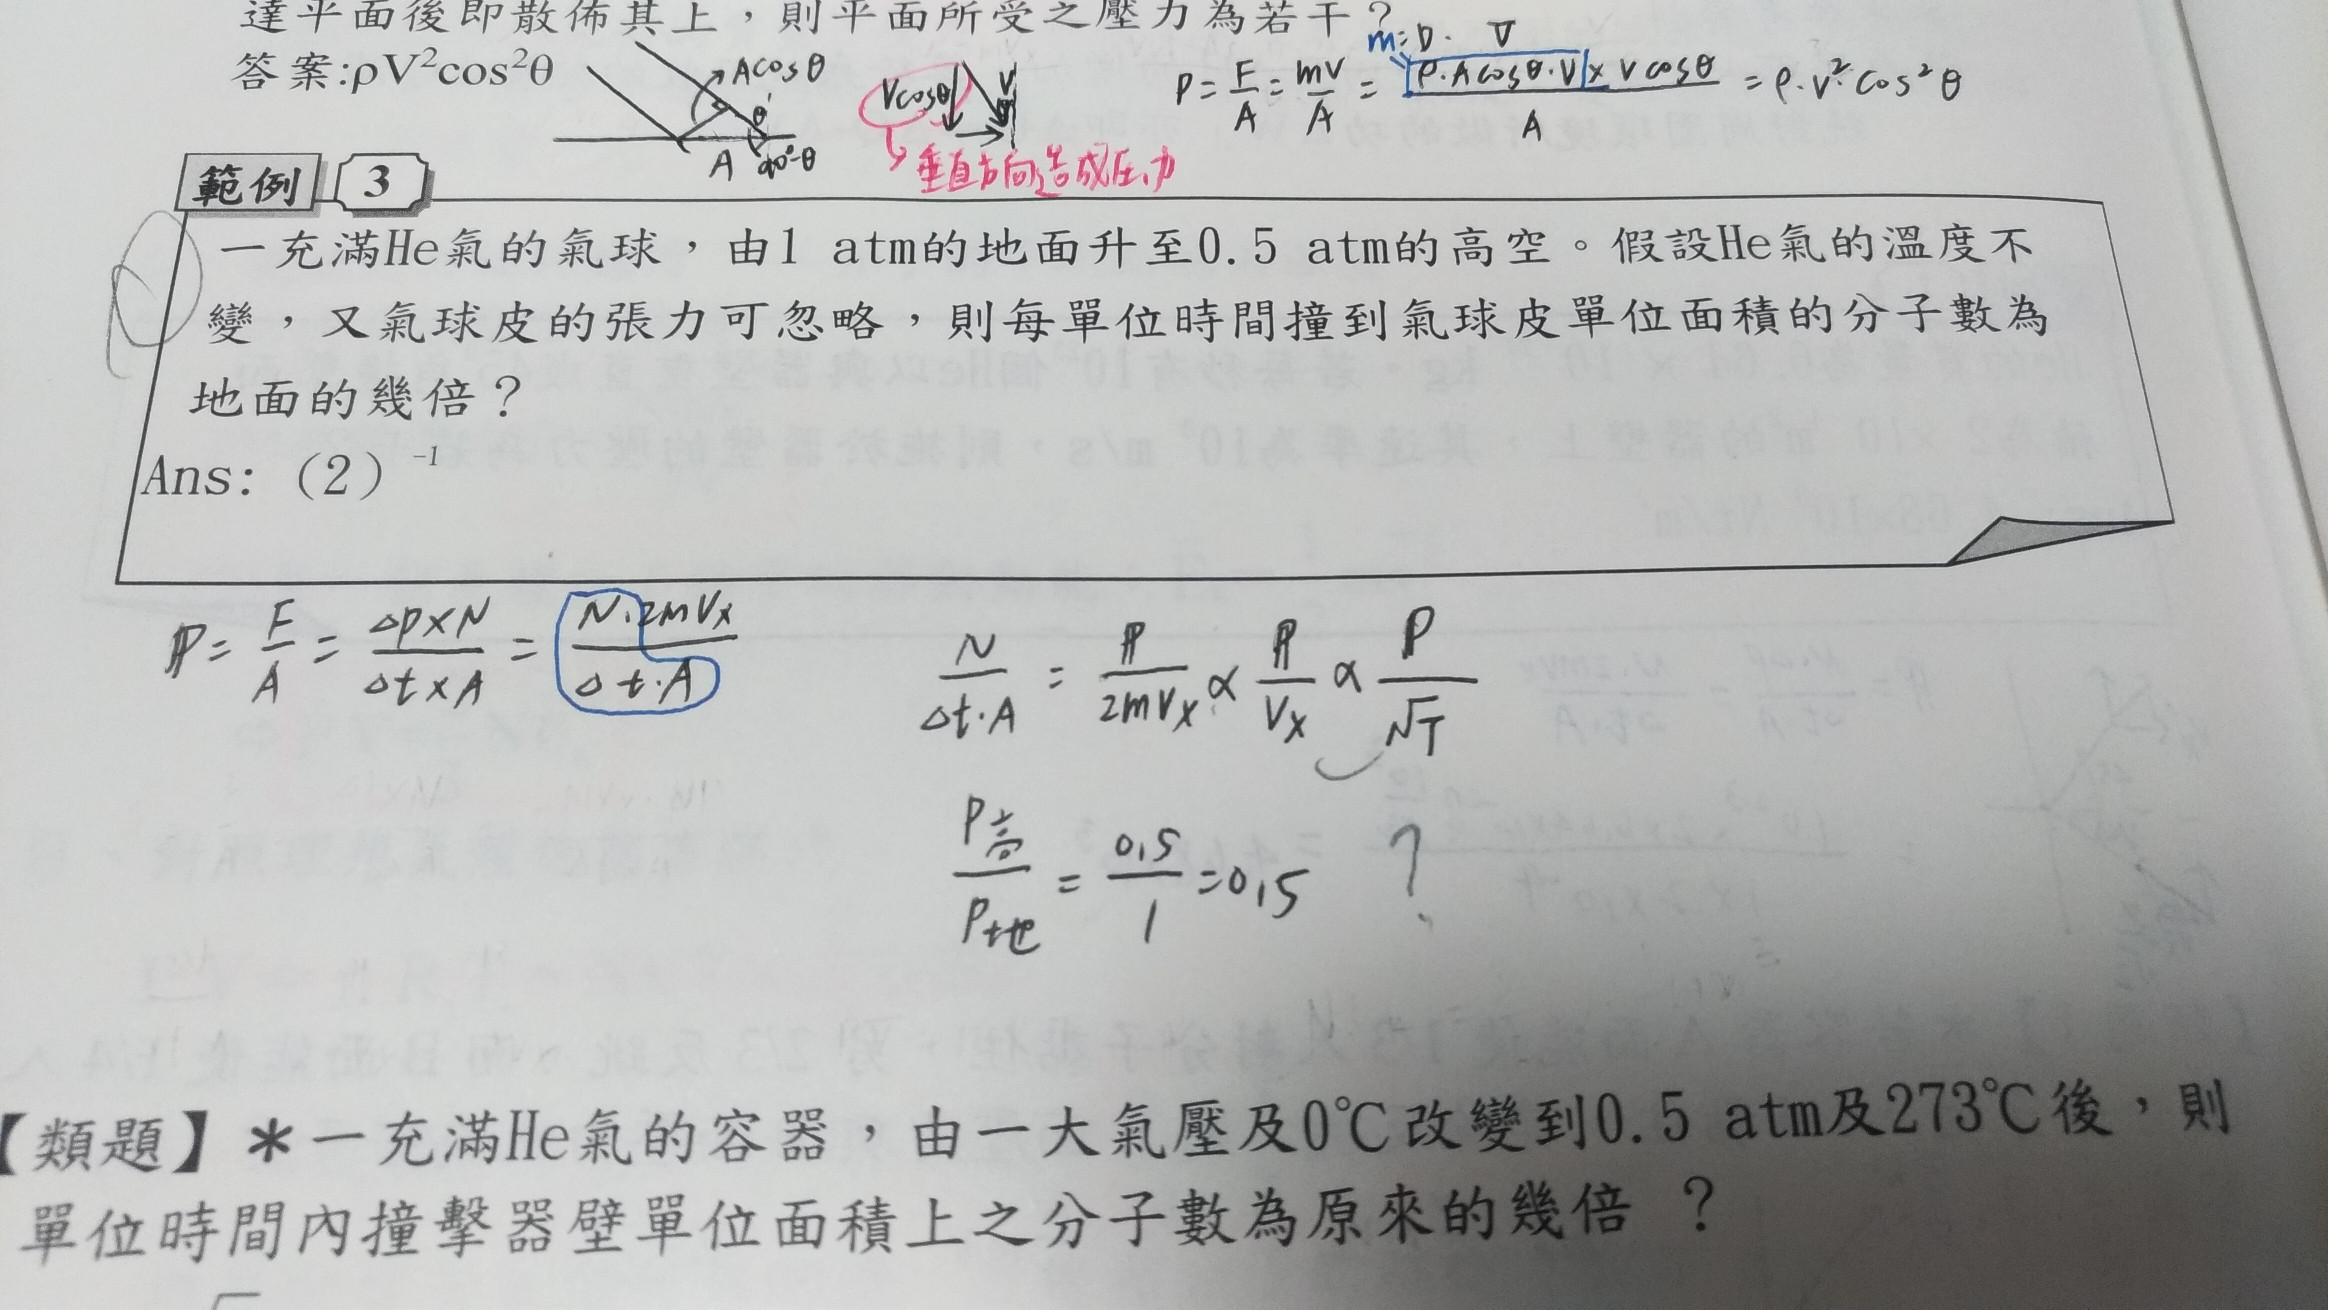 達平面後即散佈其上，則平面所受之壓力為若干？
答案:ρV²cos²θ
Acosθ
θ
A 90°-θ
Vcosθ
V
垂直方向造成壓力
m=D．V
P=F/A=mV/A=ρ·Acosθ·V×Vcosθ/A=ρ·V²·cos²θ
範例 3
一充滿He氣的氣球，由1 atm的地面升至0.5 atm的高空。假設He氣的溫度不
變，又氣球皮的張力可忽略，則每單位時間撞到氣球皮單位面積的分子數為
地面的幾倍？
Ans:（2）⁻¹
P=F/A=Δp×N/Δt×A=N·2mVx/Δt·A
N/Δt·A=P/2mVx∝P/Vx∝P/√T
P高/P地=0.5/1=0.5 ?
【類題】＊一充滿He氣的容器，由一大氣壓及0℃改變到0.5 atm及273℃後，則
單位時間內撞擊器壁單位面積上之分子數為原來的幾倍 ？